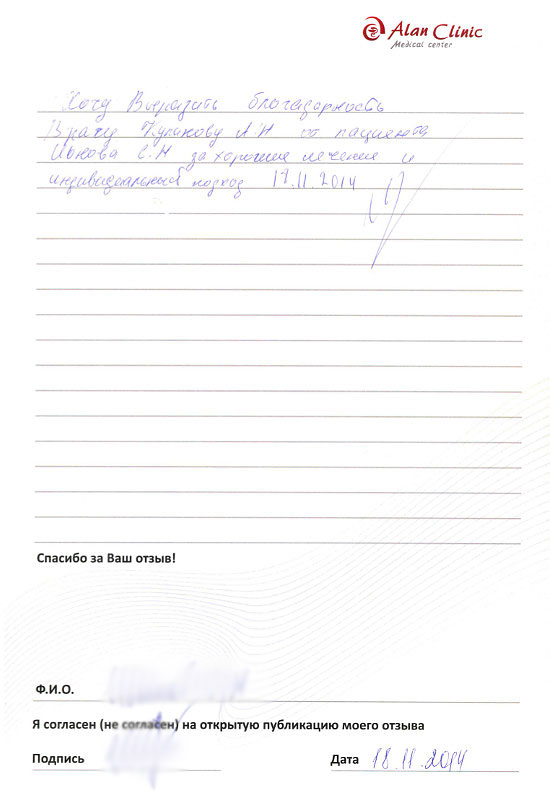 Alan Clinic
Medical center
Хочу Выразить благодарность
Врачу Куликову А.Н от пациента
С.Н за хорошие лечение и
индивидеальный подход 17.11.2014
Спасибо за Ваш отзыв!
Ф.И.О.
Я согласен (не согласен) на открытую публикацию моего отзыва
Подпись
Дата 18.11.2014